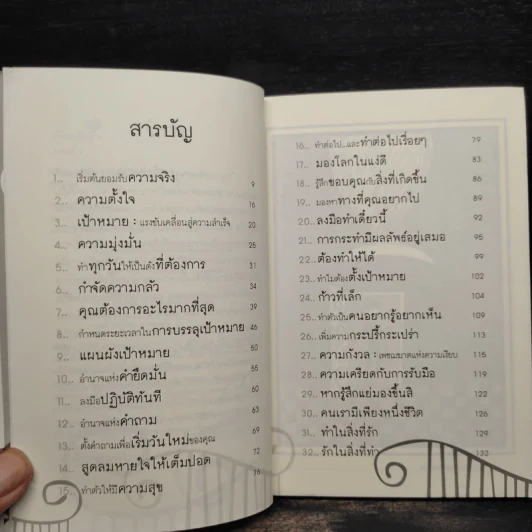 สารบัญ
1.. เริ่มต้นยอมรับความจริง 9
2.. ความตั้งใจ 16
3.. เป้าหมาย : แรงขับเคลื่อนสู่ความสำเร็จ 20
4.. ความมุ่งมั่น 25
5.. ทำทุกวันให้เป็นดั่งที่ต้องการ 31
6.. กำจัดความกลัว 34
7.. คุณต้องการอะไรมากที่สุด 39
8.. กำหนดระยะเวลาในการบรรลุเป้าหมาย 46
9.. แผนผังเป้าหมาย 50
10.. อำนาจแห่งคำยืนมั่น 55
11.. ลงมือปฏิบัติทันที
12.. อำนาจแห่งคำถาม
13.. ตั้งคำถามเพื่อเริ่มวันใหม่ของคุณ 69
14.. สูดลมหายใจให้เต็มปอด 72
15.. ทำตัวให้มีความสุข
16.. ทำต่อไป...และทำต่อไปเรื่อยๆ 79
17.. มองโลกในแง่ดี 83
18.. รู้สึกขอบคุณกับสิ่งที่เกิดขึ้น 86
19.. มองหาทางที่คุณอยากไป 89
20.. ลงมือทำเดี๋ยวนี้ 92
21.. การกระทำมีผลลัพธ์อยู่เสมอ 95
22.. ต้องทำให้ได้ 99
23.. ทำไมต้องตั้งเป้าหมาย 102
24.. ก้าวที่เล็ก 104
25.. ทำตัวเป็นคนอยากรู้อยากเห็น 109
26.. เพิ่มความกระปรี้กระเปร่า 113
27.. ความกังวล : เพชฌฆาตแห่งความเงียบ 115
28.. ความเครียดกับการรับมือ 118
29.. หากรู้สึกแย่มองขึ้นสิ 122
30.. คนเรามีเพียงหนึ่งชีวิต 127
31.. ทำในสิ่งที่รัก 129
32.. รักในสิ่งที่ทำ 133